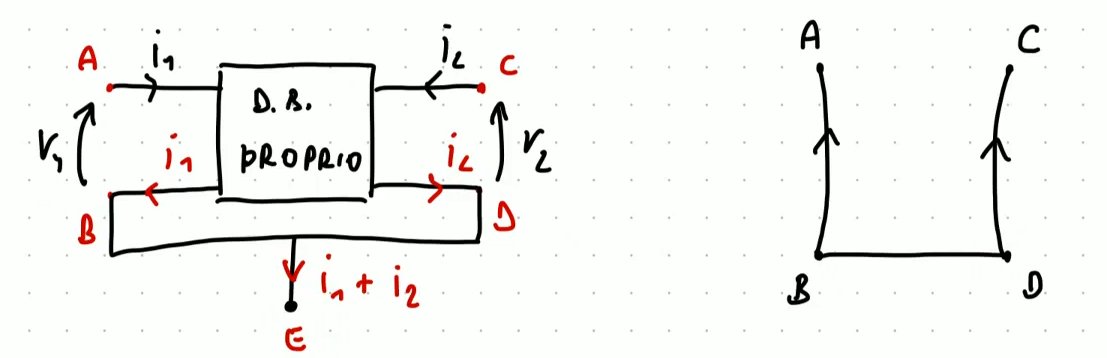 A
i₁
i₂
C
D.B.
PROPRIO
V₁
i₁
i₂
V₂
B
D
i₁ + i₂
E
A
C
B
D